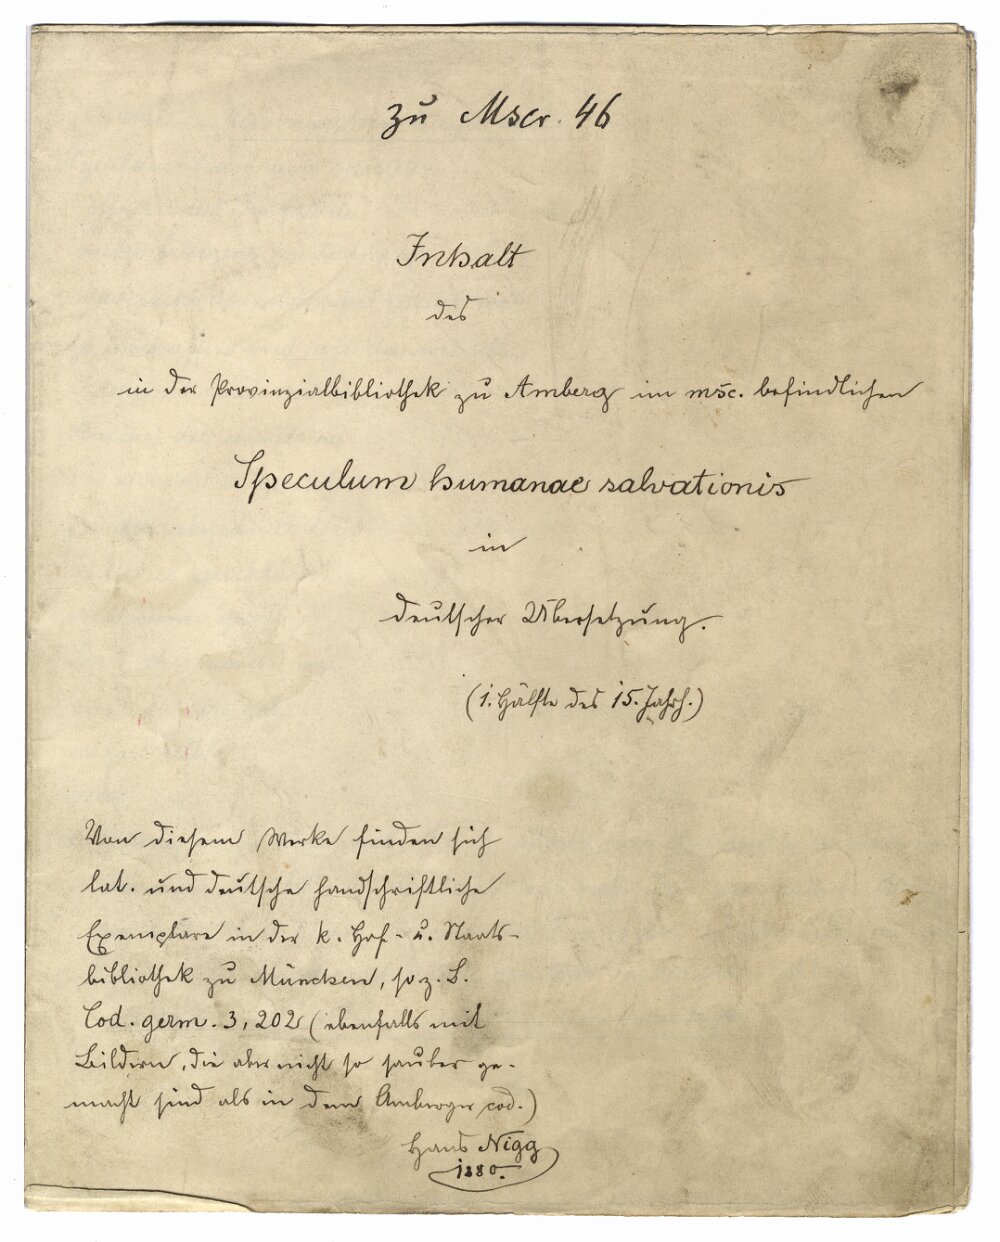 zu Mscr. 46
Inhalt
des
in der Provinzialbibliothek zu Amberg im msc. befindlichen
Speculum humanae salvationis
in
deutscher Übersetzung.
(1. Hälfte des 15. Jahrh.)
Von diesem Werke finden sich
lat. und deutsche handschriftliche
Exemplare in der k. Hof- u. Staats-
bibliothek zu München, so z. B.
Cod. germ. 3, 202 (ebenfalls mit
Bildern, die aber nicht so sauber ge-
macht sind als in dem Amberger cod.)
Hans Nigg
1880.